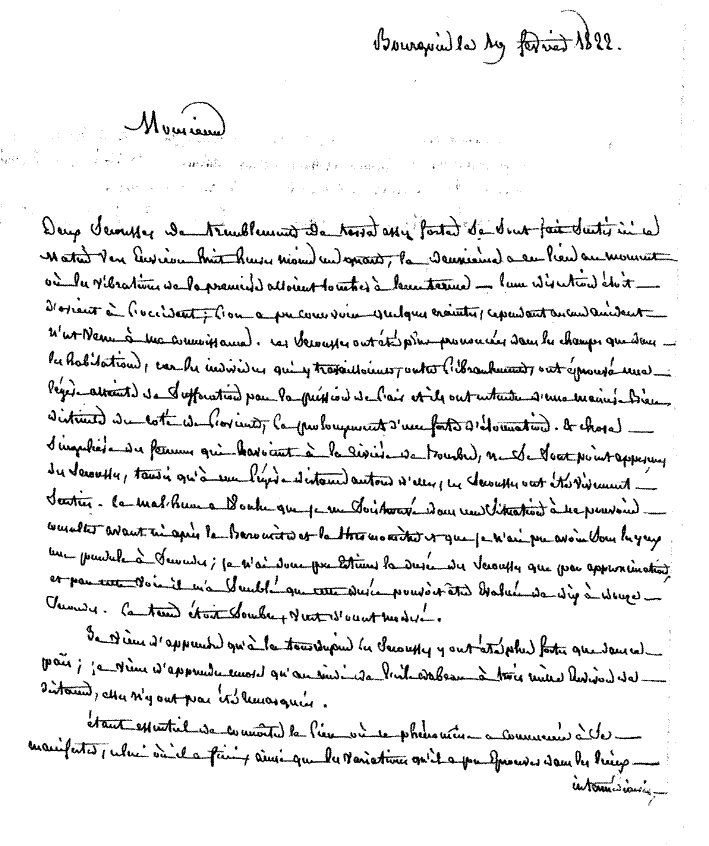 Bourgoin le 19 février 1822.
Monsieur
Deux secousses de tremblement de terre assez fortes se sont fait sentir ici ce
matin vers environ huit heures moins un quart, la deuxième a eu lieu au moment
où les vibrations de la première alloient toucher à leur terme leur direction étoit
d'orient à l'occident; l'on a pu concevoir quelques craintes, cependant aucun accident
n'est venu à ma connoissance. ces secousses ont été plus prononcées dans les champs que dans
les habitations, car les individus qui y travailloient, outre l'ébranlement, ont éprouvé une
légère atteinte de suffocation par la pression de l'air et ils ont entendu d'une manière bien
distincte du coté de l'orient, le prolongement d'une forte détonnation. & chose
singulière des femmes qui lavoient à la rivière de Bourbre, ne se sont point apperçues
des secousses, tandis qu'à une légère distance autour d'elles, ces secousses ont été vivement
senties. le malheur a voulu que je me sois trouvé dans une situation à ne pouvoir
consulter avant ni après le Baromètre et le thermomètre et que je n'ai pu avoir sous les yeux
une pendule à secondes; je n'ai donc pu estimer la durée des secousses que par approximation,
et par cette voie il m'a semblé que cette durée pouvoit être évaluée de dix à douze
secondes. le tems étoit sombre, vent d'ouest modéré.
Je viens d'apprendre qu'à la tour du pin les secousses y ont été plus fortes que dans ce
païs; je viens d'apprendre encore qu'au midi de l'isle d'abeau à trois mille environ de
distance, elles n'y ont pas été remarquées.
étant essentiel de connoître le lieu où ce phénomène a commencé à se
manifester, celui où il a fini, ainsi que les variations qu'il a pu éprouver dans les lieux
intermédiaires,